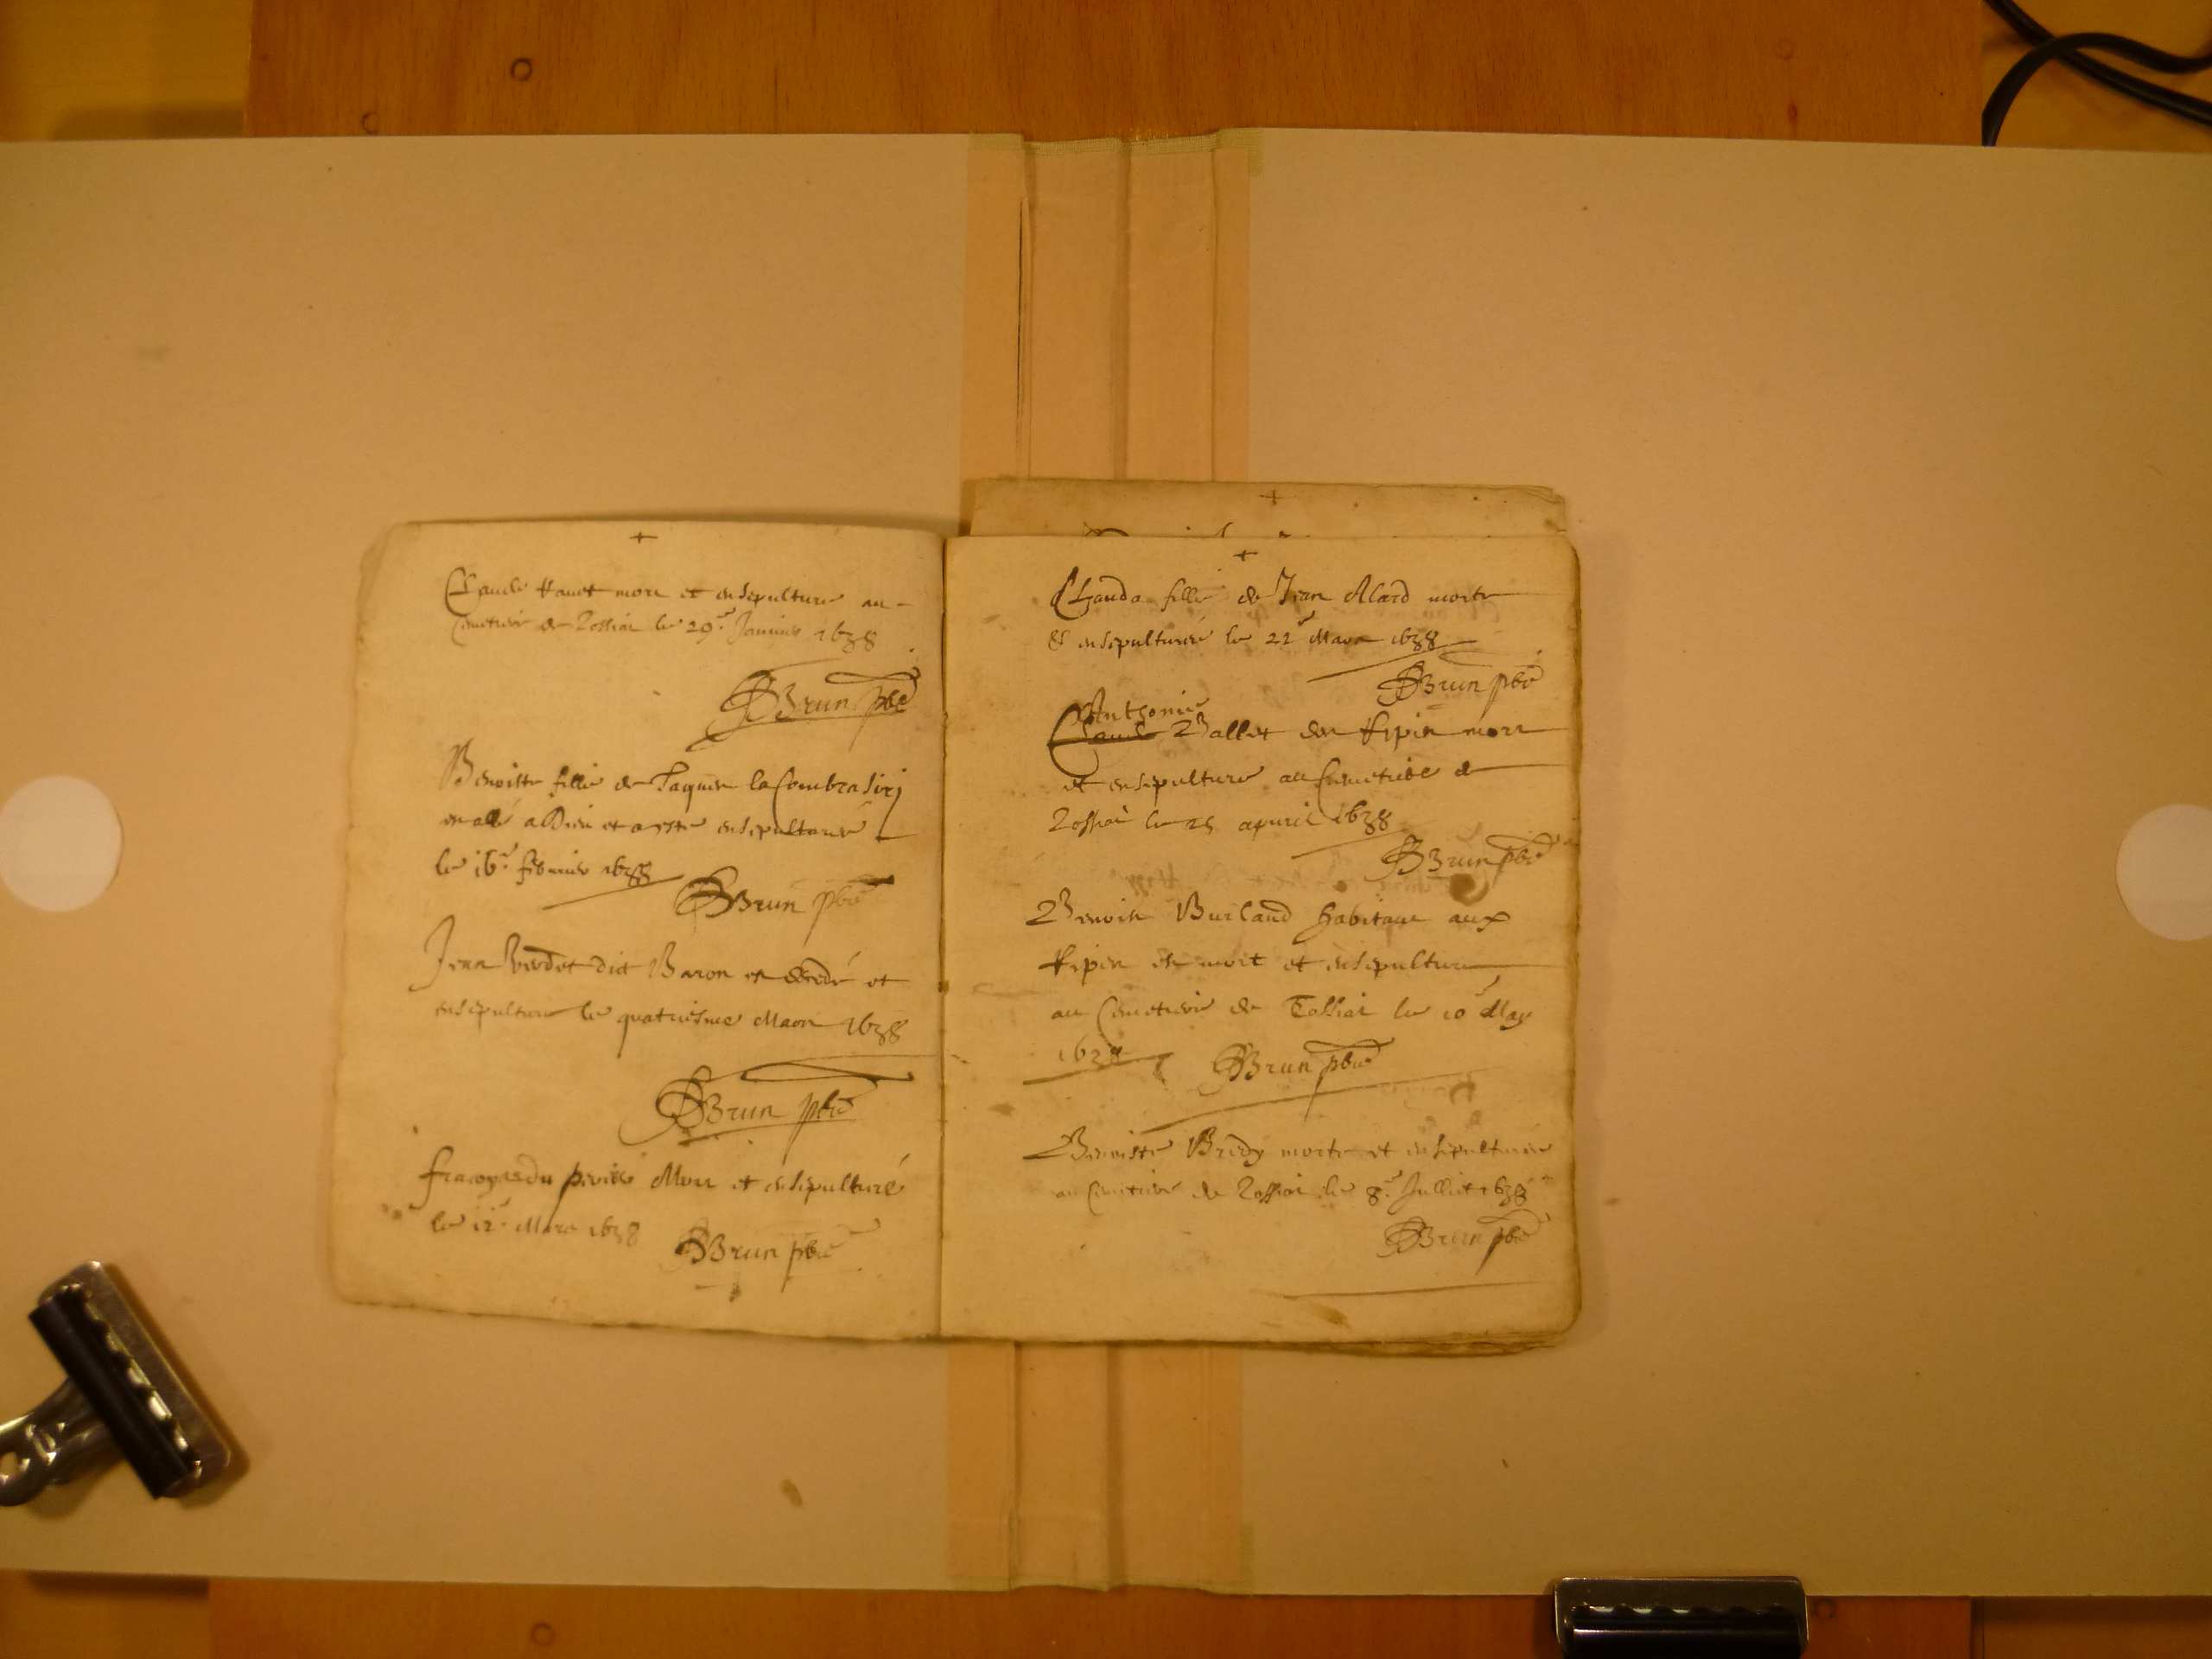 +
Claude Hauet mort et ensepulture au
Cimetiere de Tossiat le 29e Januier 1638
Brun pbre
Benoiste fille de Jaques la Combe
en allé a Dieu et a este ensepulturee
le 16e feburier 1638
Brun pbre
Jean Verdet dit Baron est decedé et
ensepulture le quatriesme Mars 1638
Brun pbre
francoys du perier Mort et ensepulturé
le 12e Mars 1638
Brun pbre
+
+
Clauda fille de Jean Alard morte
& ensepulturée le 22e Mars 1638
Brun pbre
Anthonie
Claude Ballet des Ripin mort
et ensepulture au Cimetiere de
Tossia le 25 apuril 1638
Brun pbre
Benoist Burland habitant aux
Ripin est mort et ensepulture
au Cimetiere de Tossiat le 10e May
1638
Brun pbre
Benoiste Bredy morte et ensepulturee
au Cimetiere de Tossiat le 8e Julliet 1638
Brun pbre